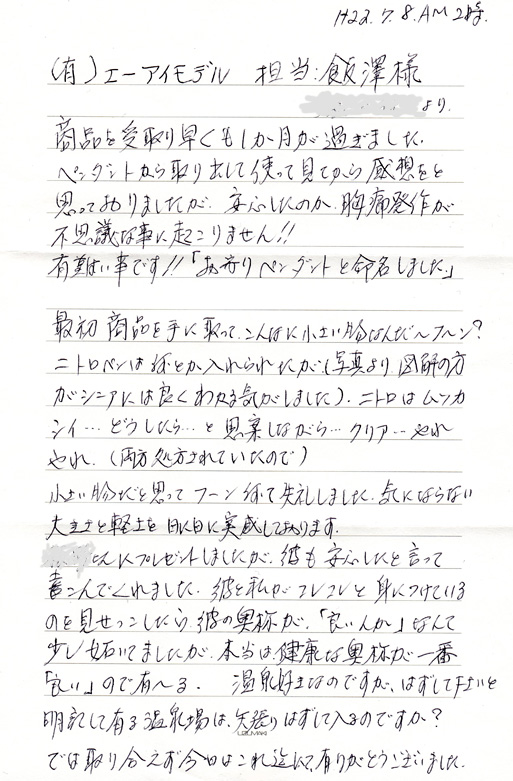 H22.7.8.AM 2時.
(有)エーアイモデル 担当:飯澤様
より.
商品を受取り早くも1か月が過ぎました.
ペンダントから取り出して使って見てから感想をと
思っておりましたが、安心したのか、胸痛発作が
不思議な事に起こりません!!
有難い事です!!「お守りペンダントと命名しました」
最初商品を手に取って、こんなに小さい物なんだ〜フ〜ン?
ニトロペンは 入れられたが(写真より図解の方
がシニアには良くわかる気がしました).ニトロはムツカ
シイ…どうしたら…と思案しながら…クリア…やれ
やれ.(両方処方されていたので)
小さい物だと思ってフーン 失礼しました.気にならない
大きさと軽さを日に日に実感しております.
さんにプレゼントしましたが、彼も安心したと言って
喜こんでくれました.彼と私がコレコレと身につけている
のを見せっこしたら彼の奥様が、「良いんか」なんて
少し妬いてましたが、本当は健康な奥様が一番
「良い」ので有〜る. 温泉好きなのですが、はずして下さいと
明記して有る温泉場は、矢張りはずして入るのですか?
では取り合えず今日はこれ迄にて有りがとうございました.